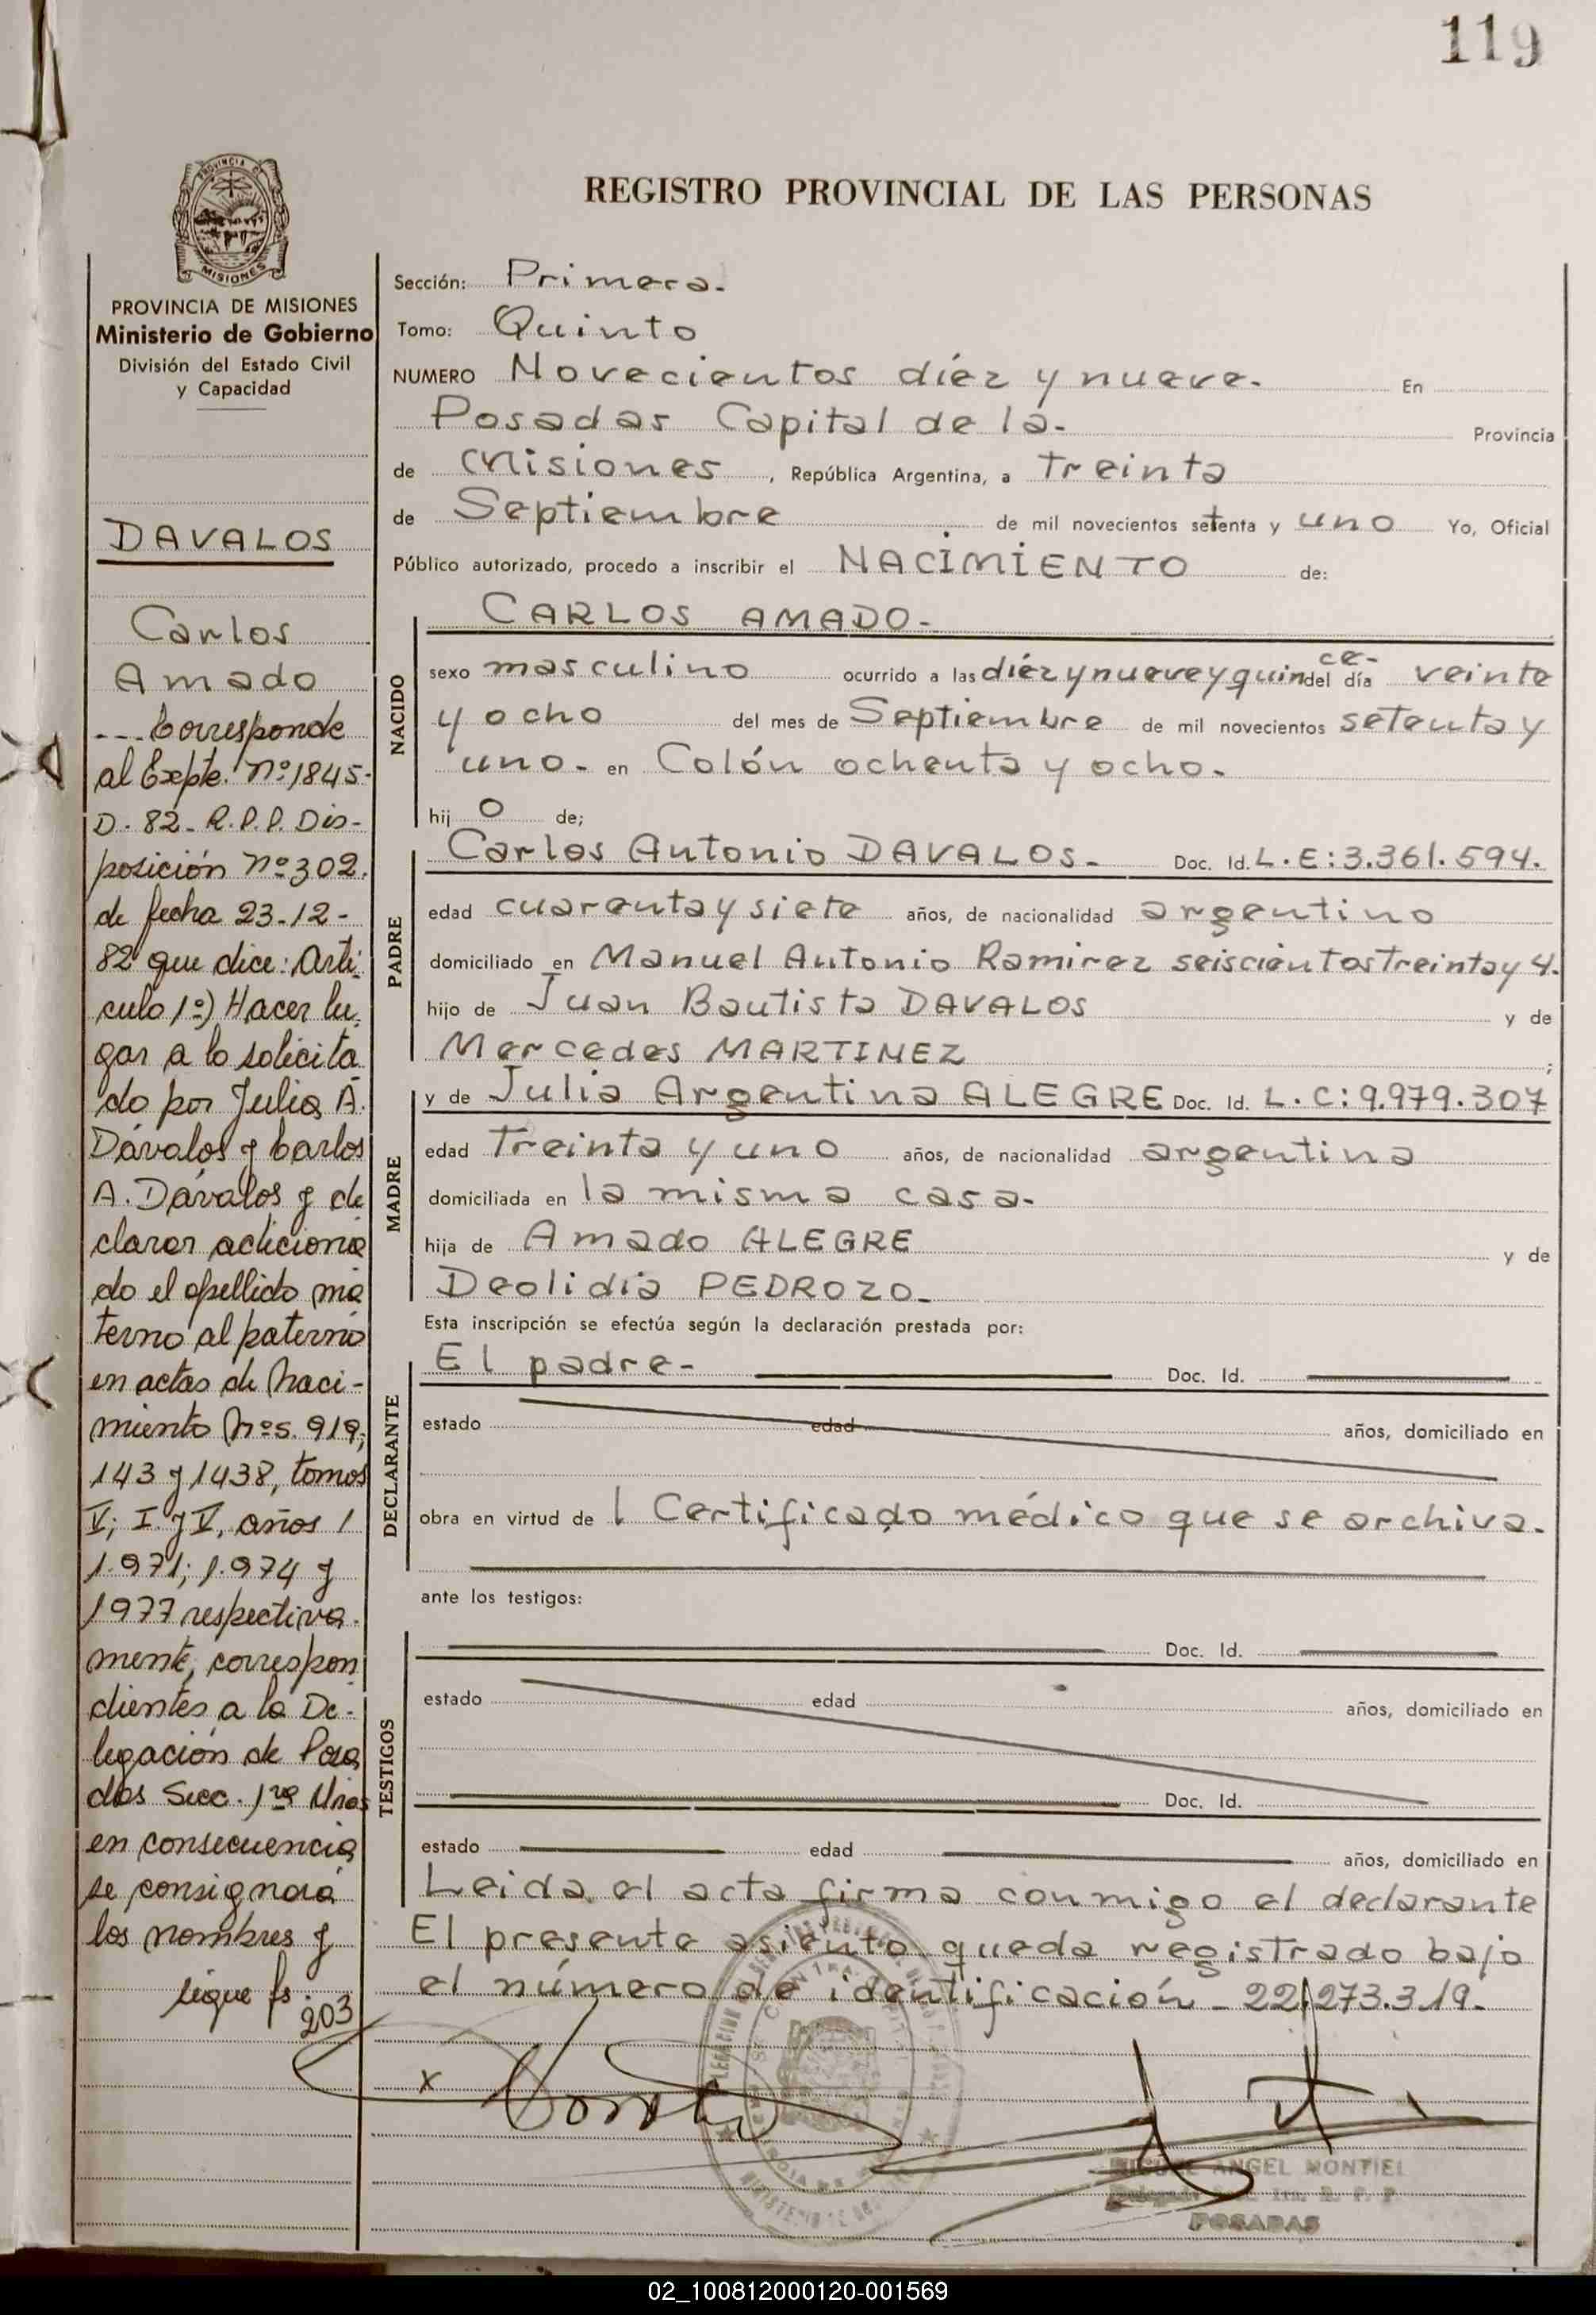 119
PROVINCIA DE
MISIONES
PROVINCIA DE MISIONES
Ministerio de Gobierno
División del Estado Civil
y Capacidad
DAVALOS
Carlos
Amado
--- Corresponde
al Expte. nº 1845-
D-82- R.P.P. Dis-
posición nº 302.
de fecha 23-12-
82 que dice: Artí-
culo 1º) Hacer lu-
gar a lo solicita
do por Julia A.
Dávalos y Carlos
A. Dávalos y de
clarar adiciona
do el apellido ma
terno al paterno
en actas de naci-
miento nºs. 919;
143 y 1438, tomos
V; I y V, años
1.971; 1.974 y
1977 respectiva-
mente, correspon
dientes a la De-
legación de Posa
das Secc. 1ra
en consecuencia
se consignará
los nombres y
sigue fs. 203
REGISTRO PROVINCIAL DE LAS PERSONAS
Sección: Primera.
Tomo: Quinto
NUMERO Novecientos diéz y nueve. En
Posadas Capital de la- Provincia
de Misiones, República Argentina, a treinta
de Septiembre de mil novecientos setenta y uno Yo, Oficial
Público autorizado, procedo a inscribir el NACIMIENTO de:
NACIDO
CARLOS AMADO-
sexo masculino ocurrido a las diéz y nueve y quince- del día veinte
y ocho del mes de Septiembre de mil novecientos setenta y
uno- en Colón ochenta y ocho.
hij o de;
PADRE
Carlos Antonio DAVALOS- Doc. Id. L.E: 3.361.594.
edad cuarenta y siete años, de nacionalidad argentino
domiciliado en Manuel Antonio Ramirez seiscientos treinta y 4.
hijo de Juan Bautista DAVALOS y de
Mercedes MARTINEZ ;
MADRE
y de Julia Argentina ALEGRE Doc. Id. L.C: 9.979.307
edad Treinta y uno años, de nacionalidad argentina
domiciliada en la misma casa-
hija de Amado ALEGRE y de
Deolidia PEDROZO-
Esta inscripción se efectúa según la declaración prestada por:
DECLARANTE
El padre- Doc. Id.
estado edad años, domiciliado en
obra en virtud de l Certificado médico que se archiva.
ante los testigos:
TESTIGOS
Doc. Id.
estado edad años, domiciliado en
Doc. Id.
estado edad años, domiciliado en
Leida el acta firma conmigo el declarante
El presente asiento queda registrado bajo
el número de identificación - 22.273.319-
x
ANGEL MONTIEL
POSADAS
02_100812000120-001569